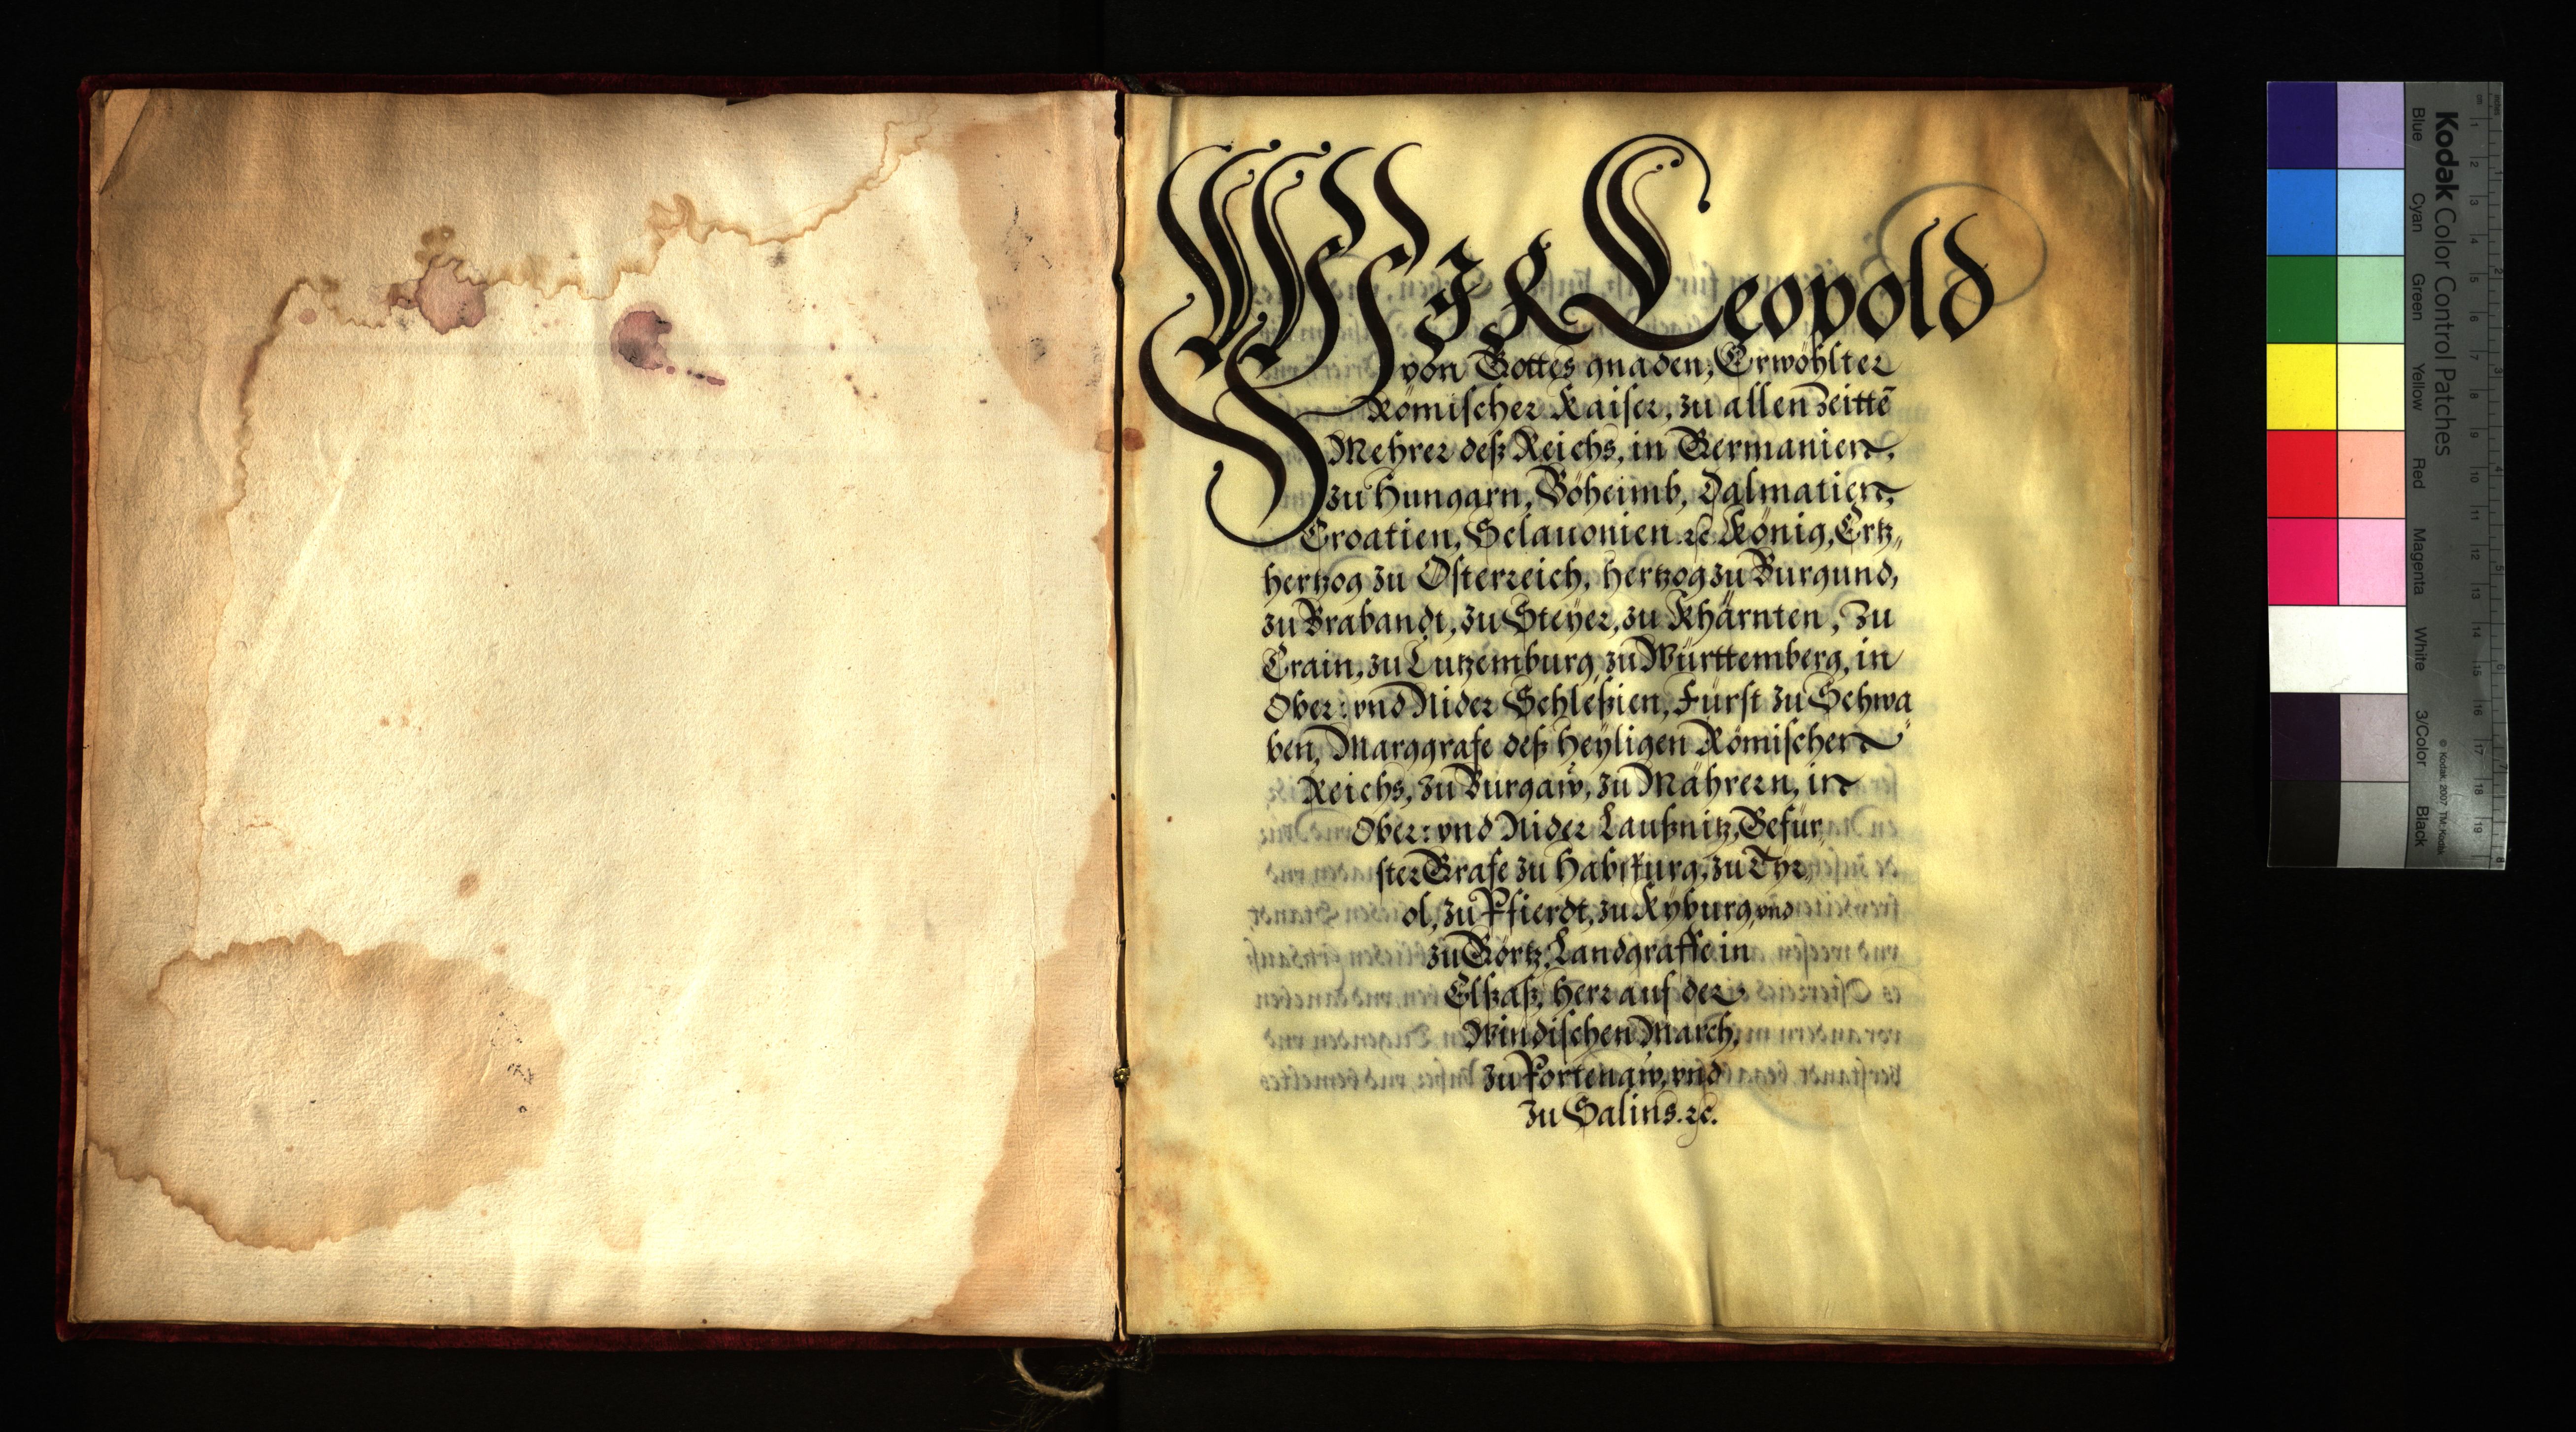 WIR Leopold
von Gottes gnaden, Erwöhlter
Römischer Kaiser, zu allen Zeittē
Mehrer deß Reichs, in Germanien,
zu Hungarn, Böheimb, Dalmatien,
Croatien, Sclauonien ꝛc König, Ertz„
hertzog zu Österreich, hertzog zu Burgund,
zu Brabandt, zu Steÿer, zu Khärnten, zu
Crain, zu Lutzemburg, zu Württemberg, in
Ober: vnd Nider Schleßien, Fürst zu Schwa
ben, Marggrafe deß heÿligen Römischen
Reichs, zu Burgaw, zu Mährern, in
Ober: vnd Nider Laußnitz, Gefür„
ster Grafe zu Habspurg, zu Tÿr„
ol, zu Pfierdt, zu Kÿburg, vnd
zu Görtz, Landgraffe in
Elsaß, herr auf der
Windischen March,
zu Portenaw, vnd
zu Salins. ꝛc.
Kodak Color Control Patches
Blue Cyan Green Yellow Red Magenta White 3/Color Black
© Kodak, 2007 TM: Kodak
cm 1 2 3 4 5 6 7 8 9 10 11 12 13 14 15 16 17 18 19
inches 1 2 3 4 5 6 7 8